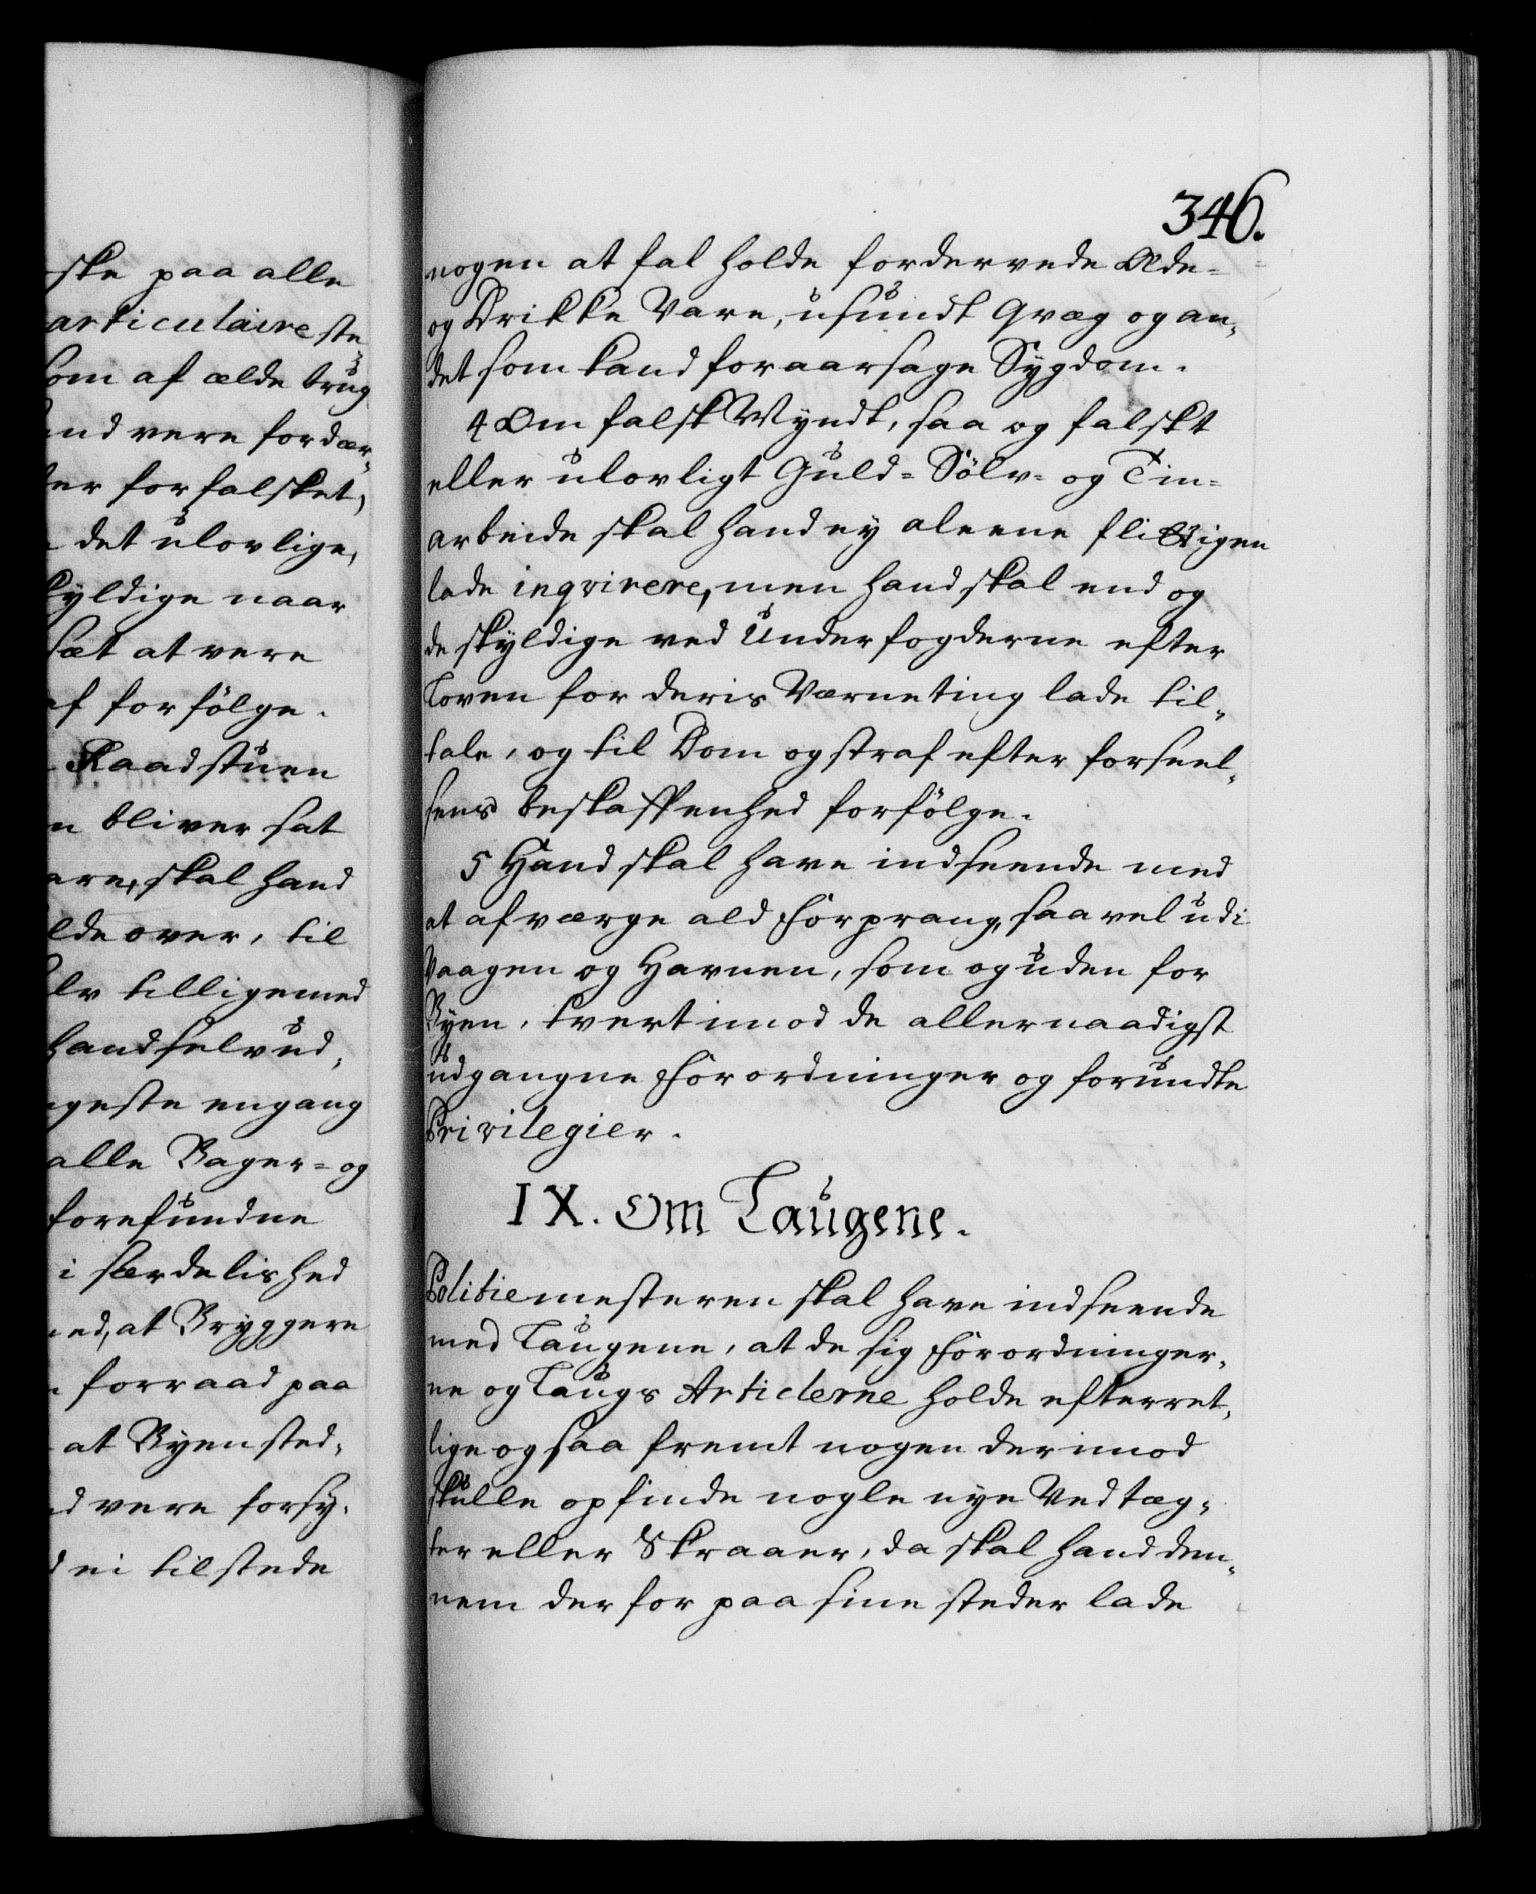 ske paa alle
articulaire ste
som af ælde brug
and være fordær¬
ter forfalsket,
det ulovlige,
kyldige naar
sæt at vere
af forfölge.
Raadstuen
n bliver sat
are, skal hand
lde over, til
elv tilligemed
hand selv ud¬
geste engang
alle Bager= og
forefundne
i særdelished
ed, at Bryggere
forraad paa
at Byen sted¬
d vere forsy¬
d ei tilstede
346.
nogen at fal holde fordervede Æde=
og Drikke Vare, usundt Qvæg og an¬
det som kand foraarsage Sygdom.
4 Om falsk Myndt, saa og falskt
eller ulovligt Guld= Sölv= og Tin=
arbeide skal hand ey aleene flittigen
lade inqvirere, men hand skal end og
de skyldige ved Underfogderne efter
Loven for deris Værneting lade til¬
tale, og til Dom og straf efter forseel¬
sens beskaffenhed forfölge.
5 Hand skal have indseende med
at afværge ald Forprang, saavel udi
Vaagen og Havnen, som og uden for
Byen, tvert imod de allernaadigst
udgangne Forordninger og forundte
Privilegier.
IX. Om Laugene.
Politiemesteren skal have indseende
med Laugene, at de sig Forordninger¬
ne og Laugs Articlerne holde efterret¬
lige og saa fremt nogen derimod
skulle opfinde nogle nye Vedtæg¬
ter eller Skraaer, da skal hand den¬
nem derfor paa sine steder lade